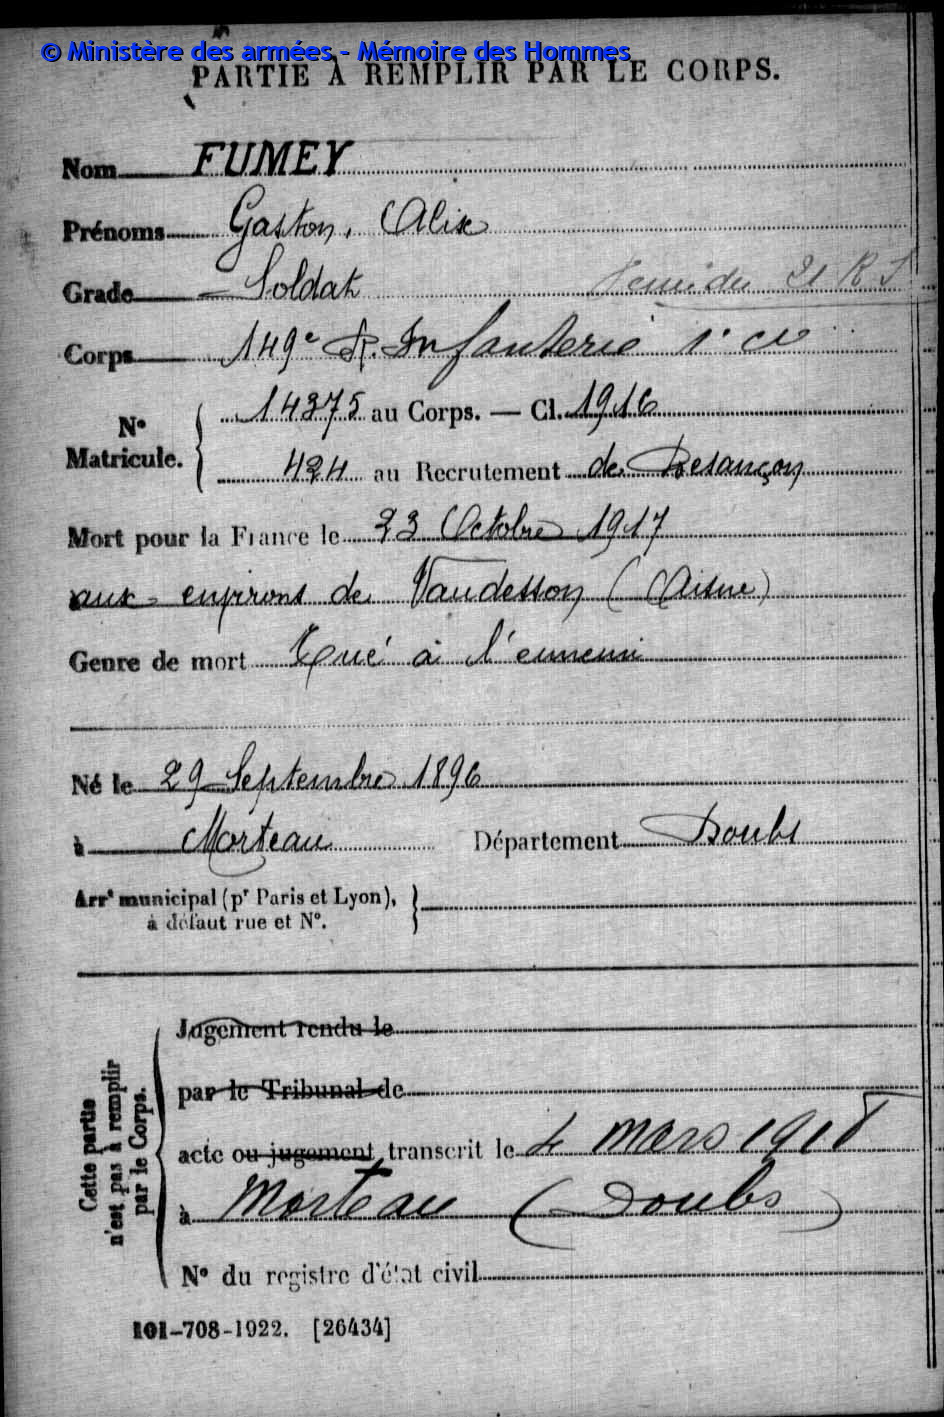 © Ministère des armées - Mémoire des Hommes
PARTIE À REMPLIR PAR LE CORPS.
Nom FUMEY
Prénoms Gaston, Alix
Grade Soldat 21 R I
Corps 149e R. Infanterie 1e cie
No Matricule. 14375 au Corps. — Cl. 1916
424 au Recrutement de Besançon
Mort pour la France le 23 Octobre 1917
aux environs de Vaudesson (Aisne)
Genre de mort Tué à l'ennemi
Né le 29 Septembre 1896
à Morteau Département Doubs
Arrt municipal (pr Paris et Lyon),
à défaut rue et No.
Cette partie
n'est pas à remplir
par le Corps.
Jugement rendu le
par le Tribunal de
acte ou jugement transcrit le 4 mars 1918
à Morteau (Doubs)
No du registre d'état civil
101-708-1922. [26434]